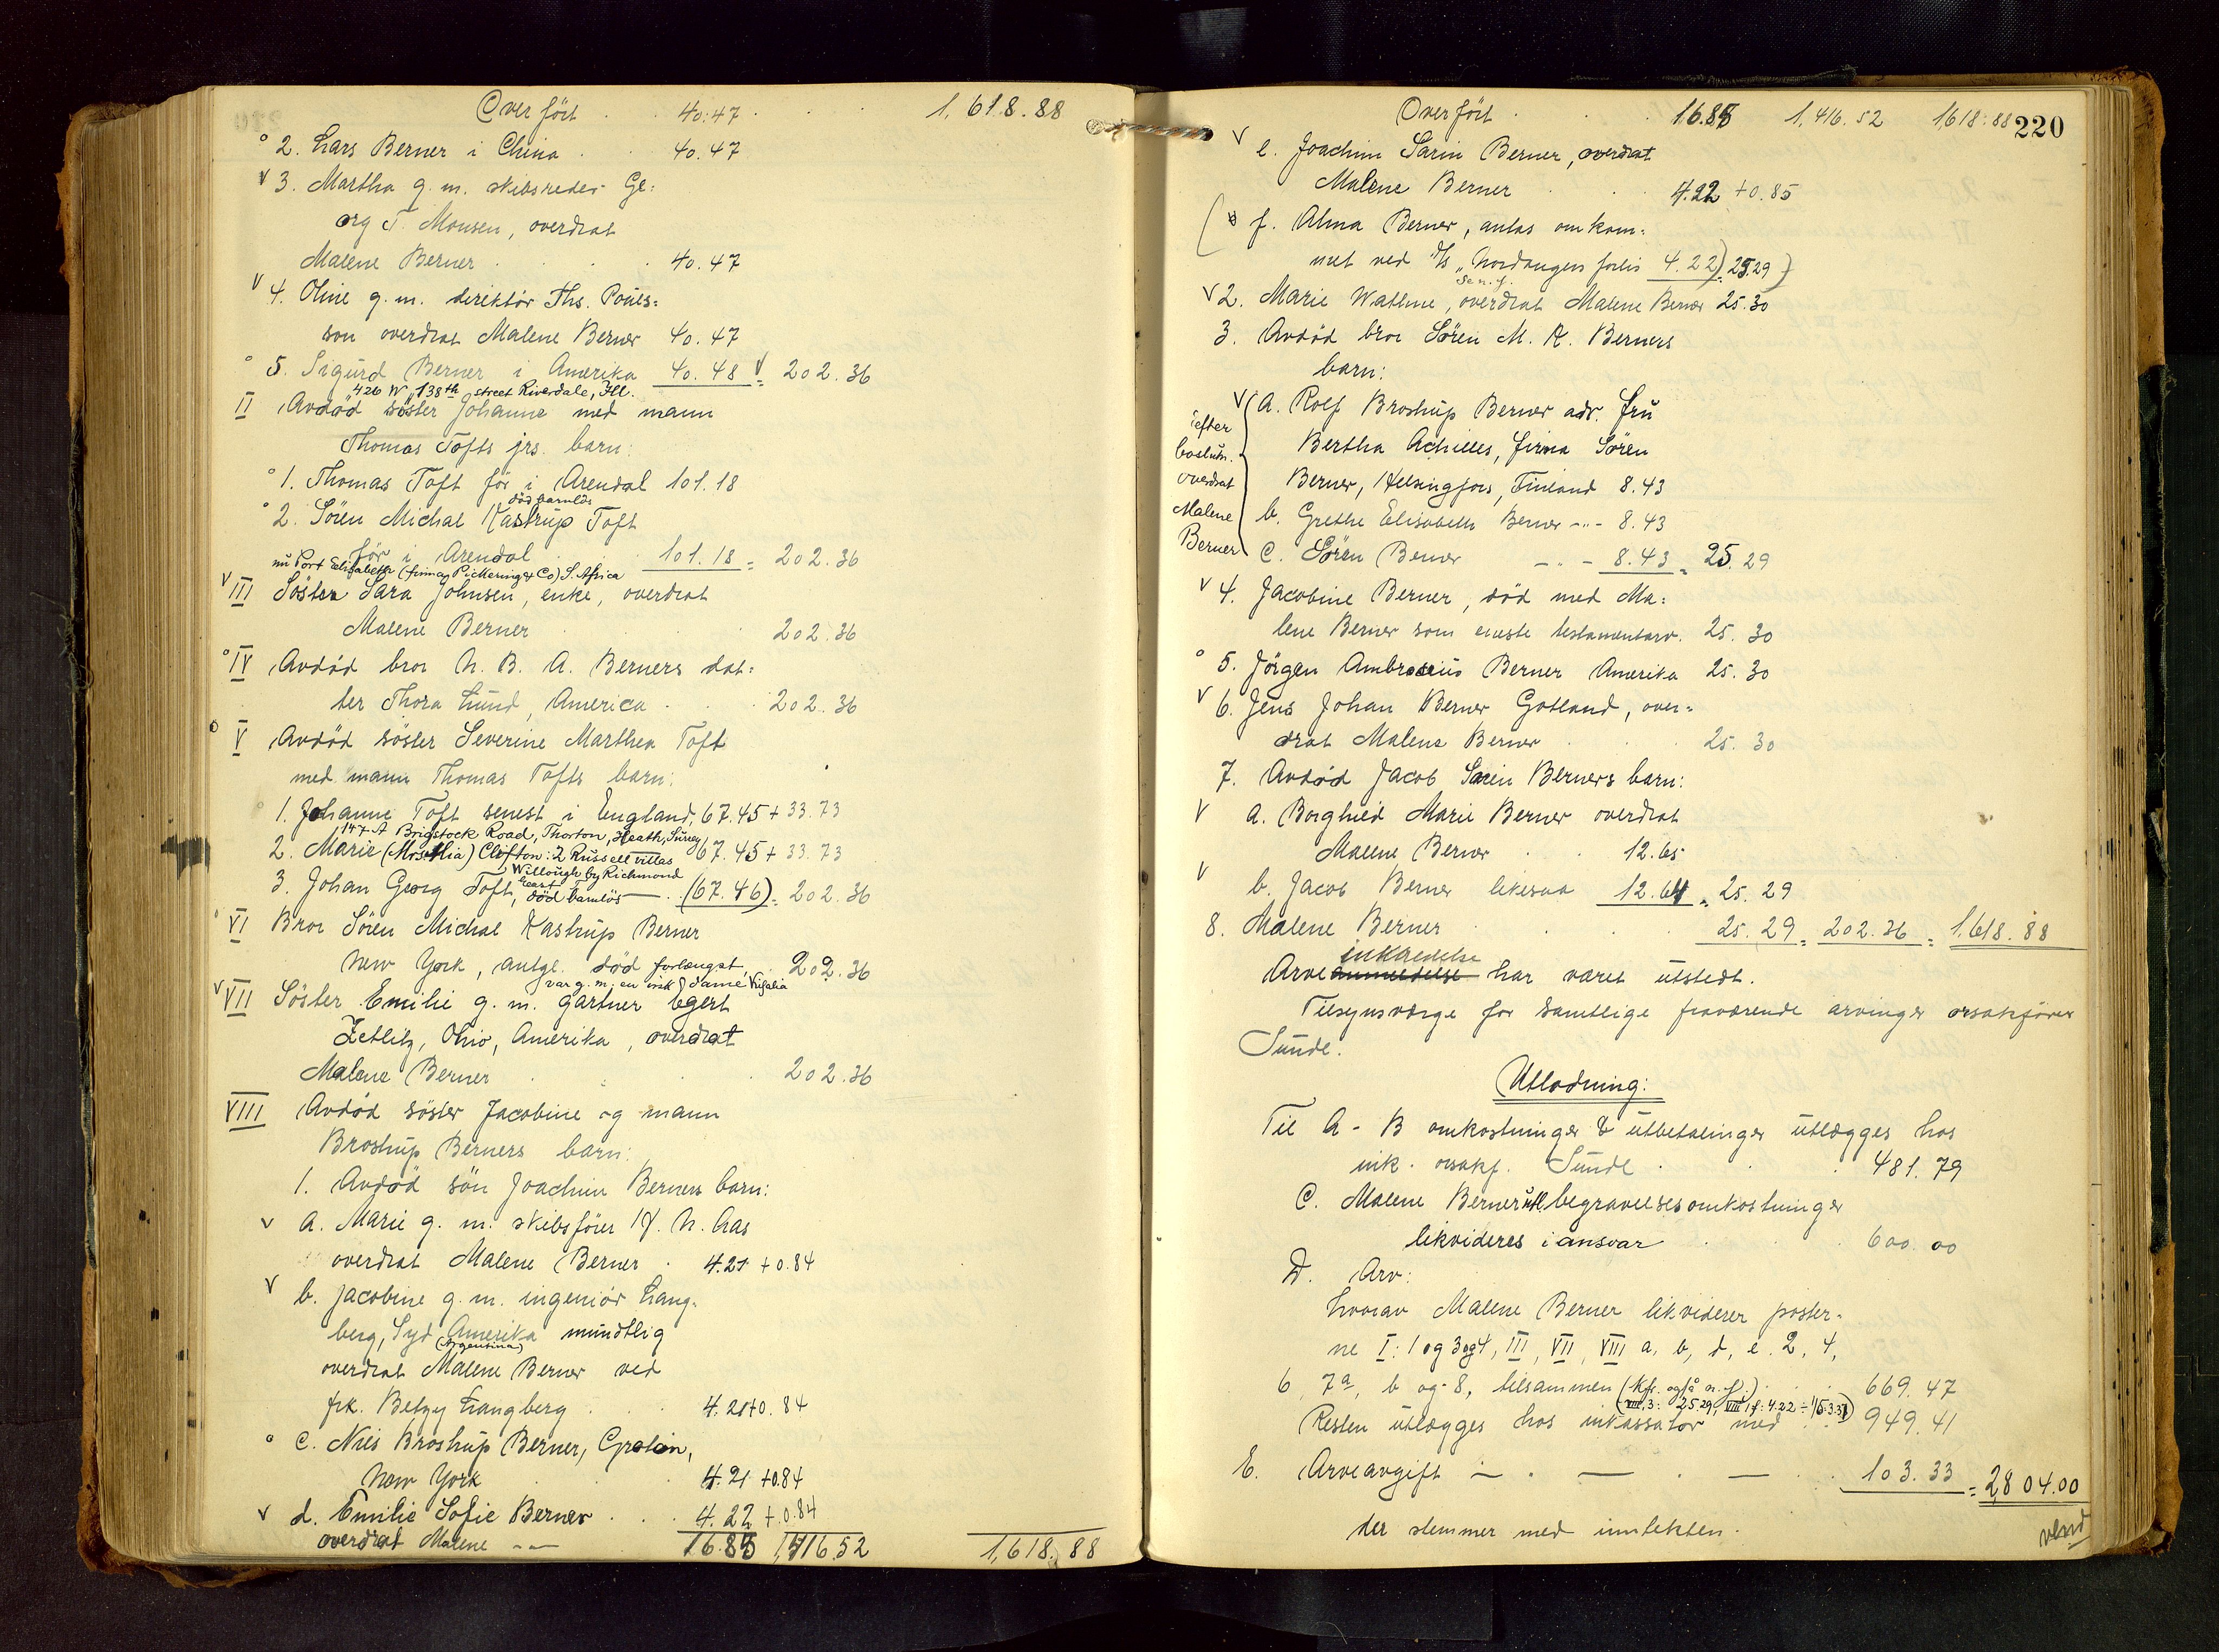 Overført . . 40.47 . . . 1,618.88
° 2. Lars Berner i China . . 40.47
V 3. Martha g. m. skibsreder Ge=
org T. Monsen, overdrat
Malene Berner . . . . 40.47
V 4. Oline g. m. direktör Ths. Poues=
son overdrat Malene Berner 40.47
° 5. Sigurd Berner i Amerika 40.48 V = 202.36
426 W 138th street Riverdale, Ill.
II Avdöd söster Johanne med mann
Thomas Tofts jrs. barn:
° 1. Thomas Toft för i Arendal 101.18
död barnlös
° 2. Sören Michal Kastrup Toft
för i Arendal . . 101.18 = 202.36
nu Port Elisabeth (firma Pickering & Co) S. Africa
V III Söster Sara Johnsen, enke, overdrat
Malene Berner . . . 202.36
° IV Avdöd bror N. B. A. Berners dat=
ter Thora Lund, America . . 202.36
° V Avdöd söster Severine Marthea Toft
med mann Thomas Tofts barn:
° 1. Johanne Toft senest i England, 67.45 + 33.73
147 A Brigstock Road, Thorton, Heath, Surrey
2. Marie (Mrs. Mia) Clifton: 2 Russell villas 67.45 + 33.73
Willoughby Richmond
East
3. Johan Georg Toft, död barnlös — . (67.46) = 202.36
° VI Bror Sören Michal Kastrup Berner
New York, antgl. död forlængst, . . 202.36
var g. m. en irsk dame
V VII Söster Emilie g. m. gartner Egert
Zetlitz, Ohio, Amerika, overdrat
Malene Berner . . . 202.36
VIII Avdöd söster Jacobine og mann
Brostrup Berners barn:
1. Avdöd sön Joachim Berners barn:
V a. Marie g. m. skibsförer H. N. Aas
overdrat Malene Berner . 4.21 + 0.84
V b. Jacobine g. m. ingeniör Lang=
berg, Syd Amerika mundtlig
(Argentina)
overdrat Malene Berner ved
frk. Betzy Langberg . . 4.21 + 0.84
° c. Nils Brostrup Berner,
New York . . 4.21 + 0.84
V d. Emilie Sofie Berner . . . 4.22 + 0.84
overdrat Malene —"— 16.85 1,416.52 1,618.88
Overført . . . 16.85 1,416.52 1,618.88 220
V e. Joachim Sarin Berner, overdrat
Malene Berner . . 4.22 + 0.85
( f. Alma Berner, antas omkom=
met ved d/s "Nordangers forlis 4.22) = 25.29 )
Se n. f.
V 2. Marie Wathne, overdrat Malene Berner 25.30
3. Avdöd bror Sören M. K. Berners
barn:
V a. Rolf Brostrup Berner adr. fru
Bertha Achilles, firma Sören
Berner, Helsingfors, Finland 8.43
b. Grethe Elisabeth Berner —"— 8.43
c. Sören Berner —"— 8.43 = 25.29
efter
beslutn.
overdrat
Malene
Berner
V 4. Jacobine Berner, död med Ma=
lene Berner som eneste testamentarv. 25.30
° 5. Jörgen Ambrosius Berner Amerika 25.30
V 6. Jens Johan Berner Gotland, over=
drat Malene Berner . . . 25.30
7. Avdöd Jacob Sarin Berners barn:
V a. Borghild Marie Berner overdrat
Malene Berner . . 12.65
V b. Jacob Berner likesaa 12.64 = 25.29
8. Malene Berner . . . 25.29 = 202.36 = 1,618.88
inkaldelse
Arveanmeldelse har været utstedt.
Tilsynsværge for samtlige fraværende arvinger orsakförer
Sunde.
Utlodning:
Til A - B omkostninger & utbetalinger utlægges hos
ink. orsakf. Sunde . . . 481.79
C. Malene Berner utl. begravelsesomkostninger
likvideres i ansvar . . . 600.00
D. Arv:
hvorav Malene Berner likviderer poster=
ne I: 1 og 3 og 4, III, VII, VIII a, b, d, e. 2, 4,
6, 7a, b og 8, tilsammen (kfr. også n. f.) . . . 669.47
(VIII, 3: 25.29, VIII 1 f: 4.22 ÷ 1/5 3.37)
Resten utlægges hos inkassator med . . 949.41
E. Arveavgift — . — . — . . 103.33 = 2,804.00
der stemmer med inntekten.
vend